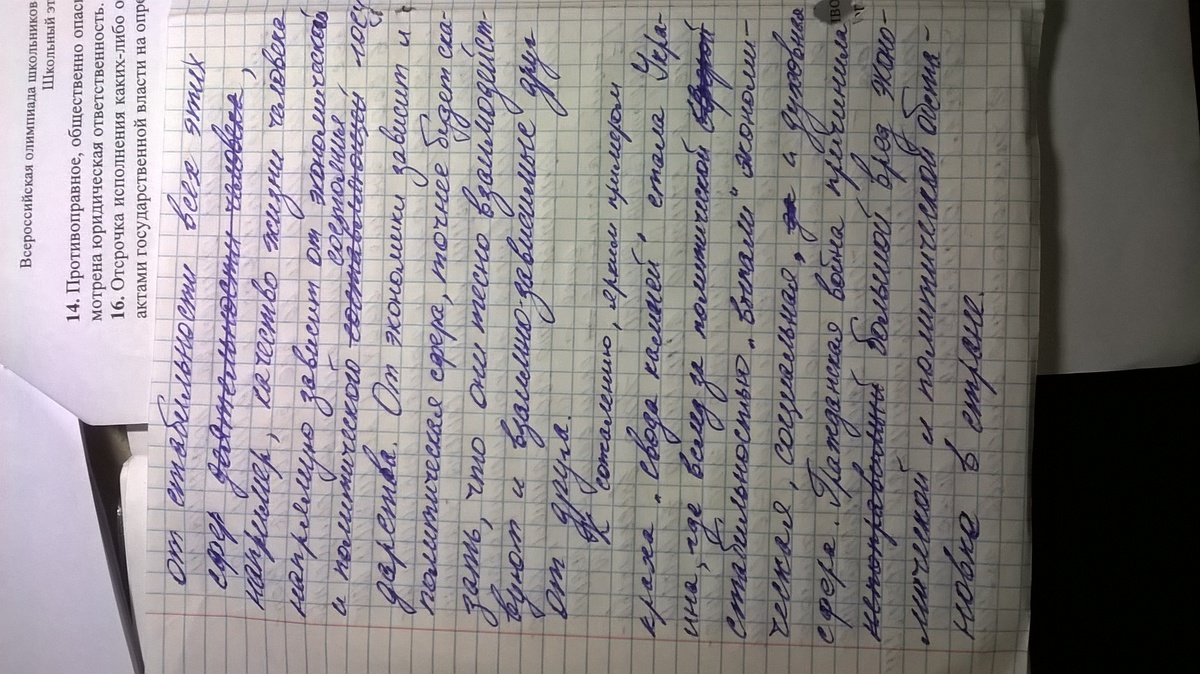 Всероссийская олимпиада школьников
Школьный эт
14. Противоправное, общественно опас
мотрена юридическая ответственность.
16. Отсрочка исполнения каких-либо о
актами государственной власти на опре
от стабильности всех этих
сфер деятельности человека,
например, качество жизни человека
напрямую зависит от экономической
и политического состояния госу
дарства. От экономики зависит и
политическая сфера, точнее будет ска-
зать, что они тесно взаимодейст-
вуют и взаимно зависимые друг
от друга.
К сожалению, ярким примером
краха „свода камней", стала Укра-
ина, где вслед за политической
стабильностью „выпали" экономи-
ческая, социальная, и духовная
сфера. Гражданская война причинила
непоправимый большой вред эконо-
мической и политической обста-
новке в стране.